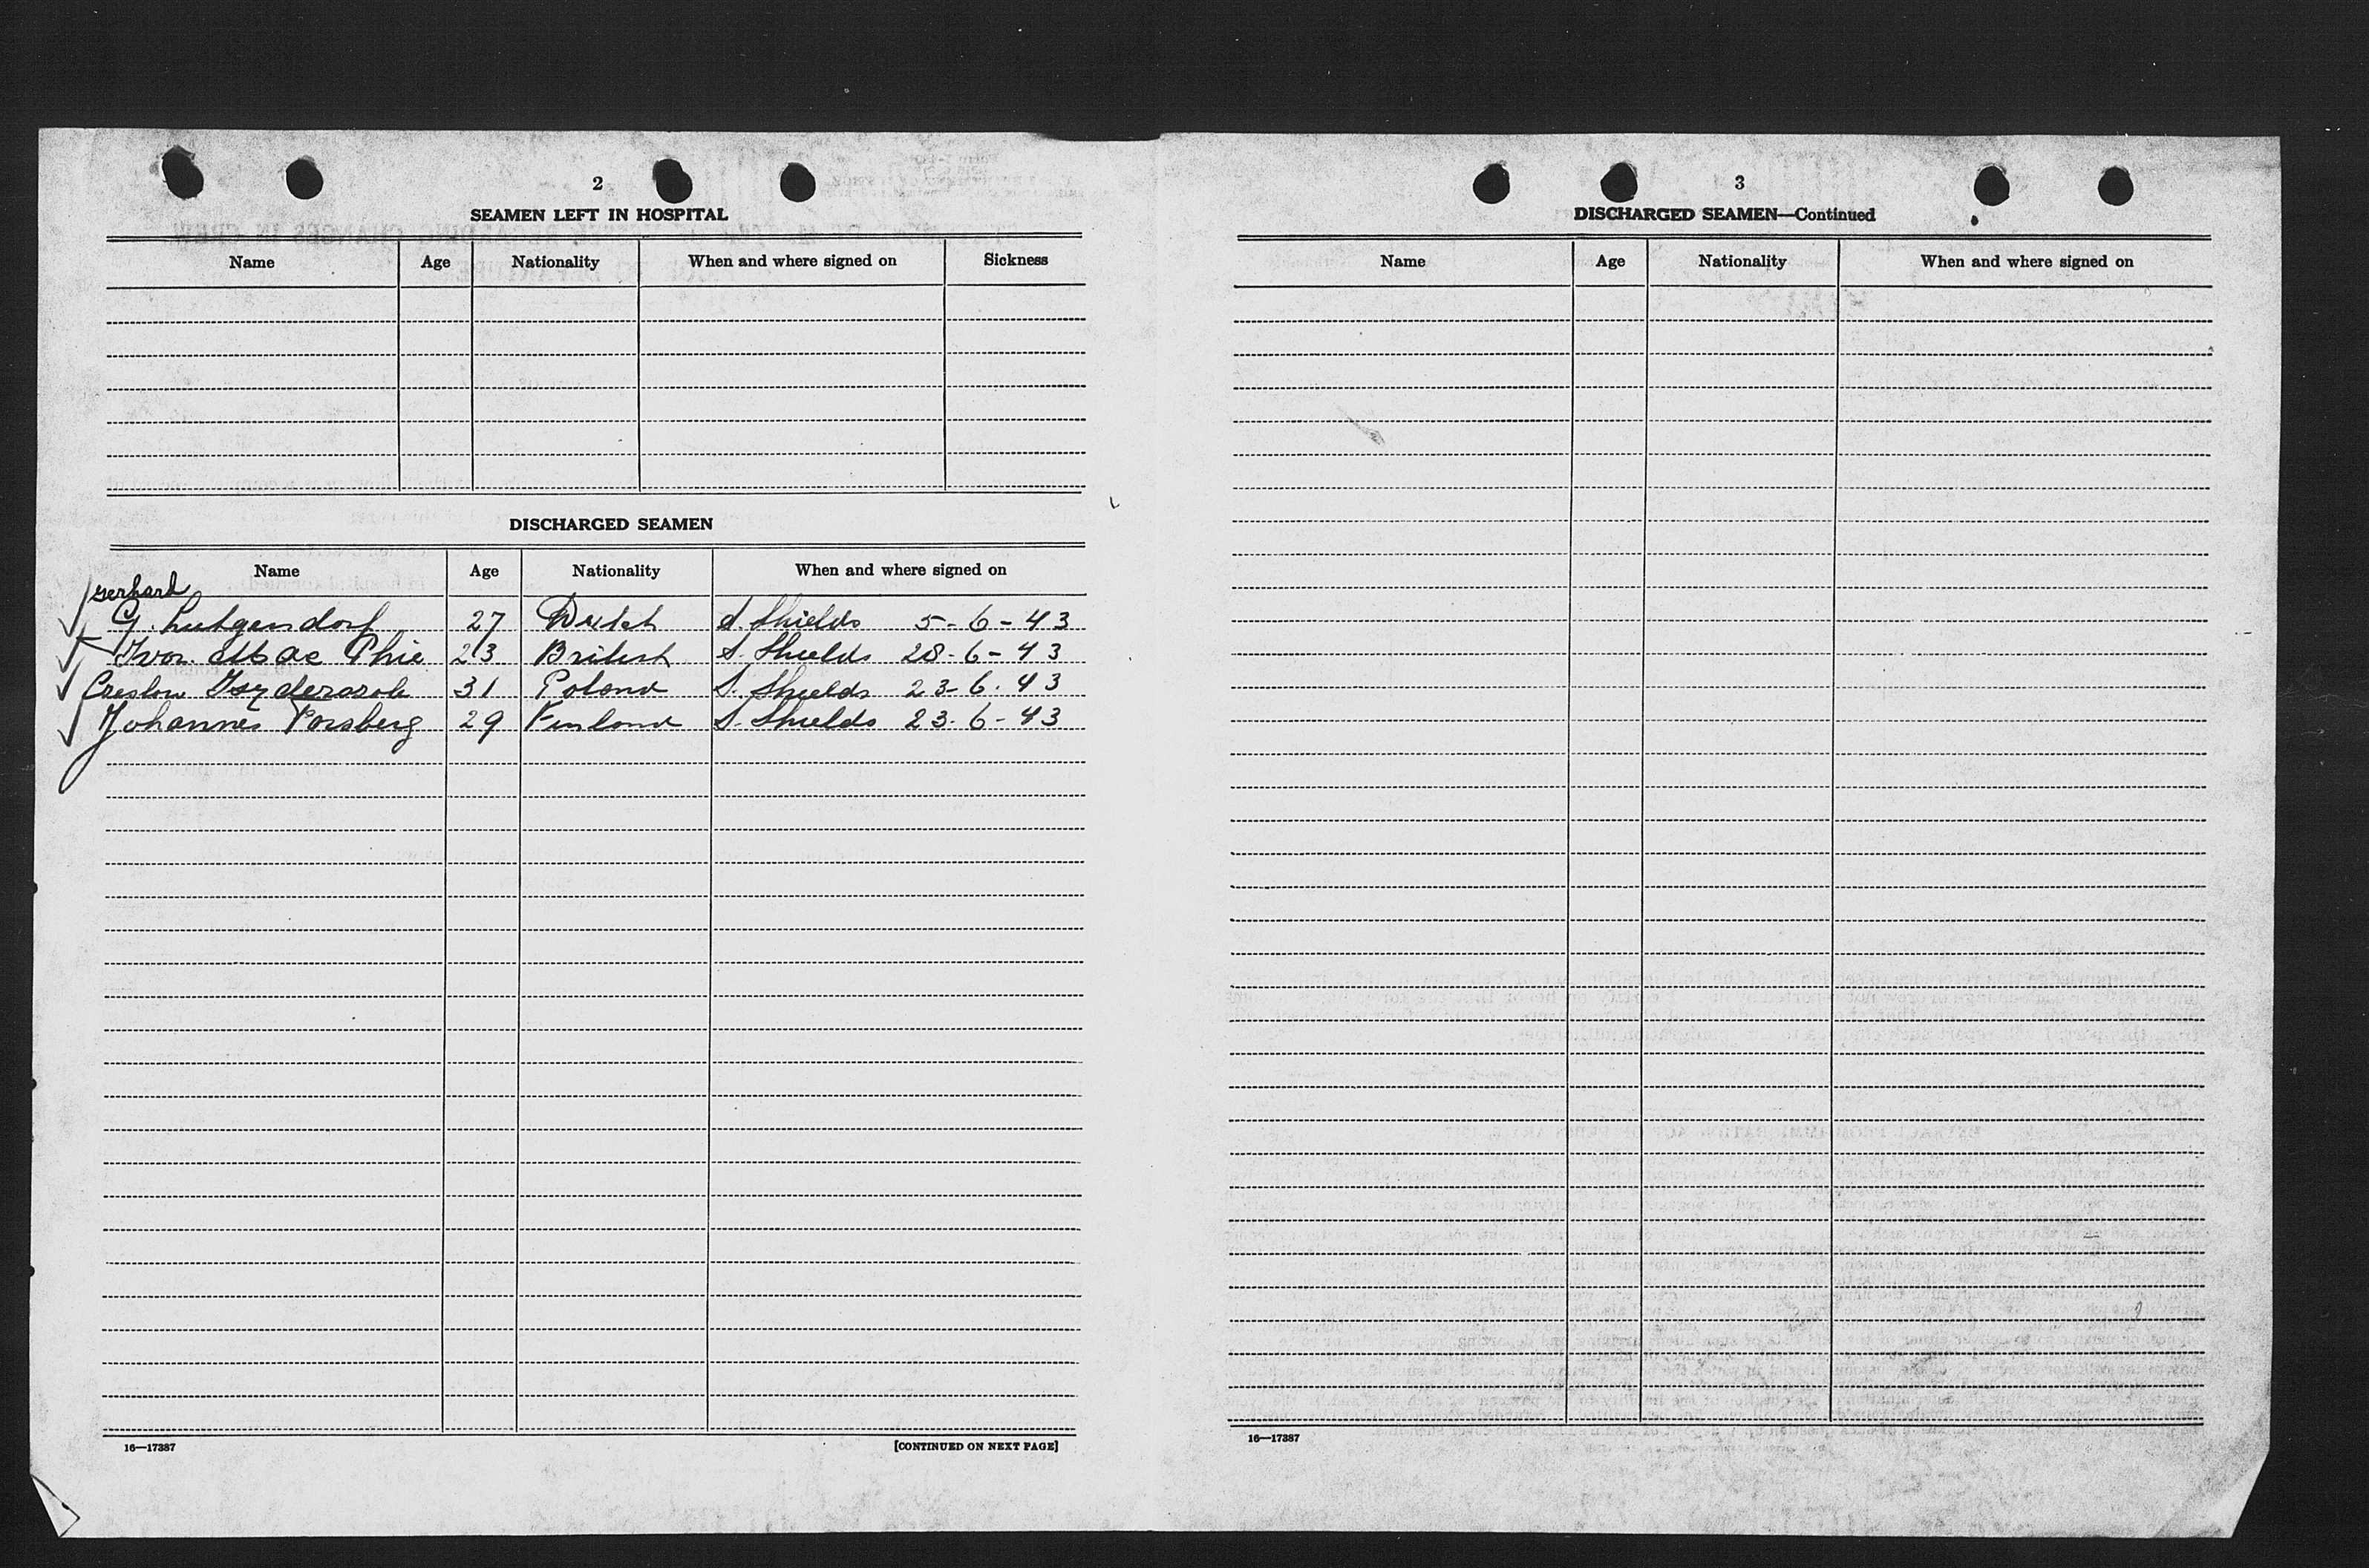 2
SEAMEN LEFT IN HOSPITAL
Name Age Nationality When and where signed on Sickness
DISCHARGED SEAMEN
Name Age Nationality When and where signed on
Gerhard
G. Lutgendorf 27 Dutch S. Shields 5-6-43
Ivor Mac Phie 23 British S. Shields 28-6-43
31 Poland S. Shields 23-6-43
Johannes Forsberg 29 Finland S. Shields 23-6-43
16—17387 [CONTINUED ON NEXT PAGE]
3
DISCHARGED SEAMEN—Continued
Name Age Nationality When and where signed on
16—17387